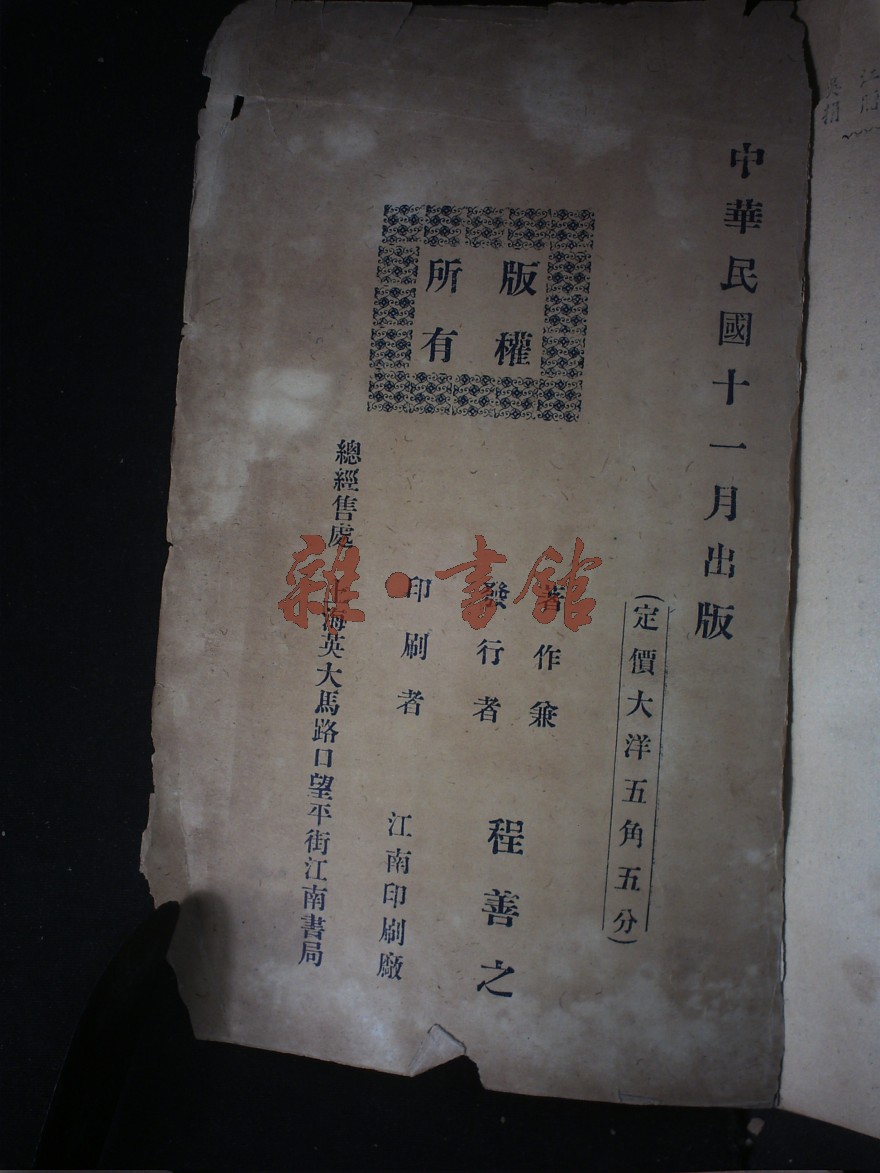 中華民國十一月出版
(定價大洋五角五分)
版權
所有
著作兼
發行者
程善之
印刷者
江南印刷廠
總經售處
上海英大馬路口望平街江南書局
雜·書館